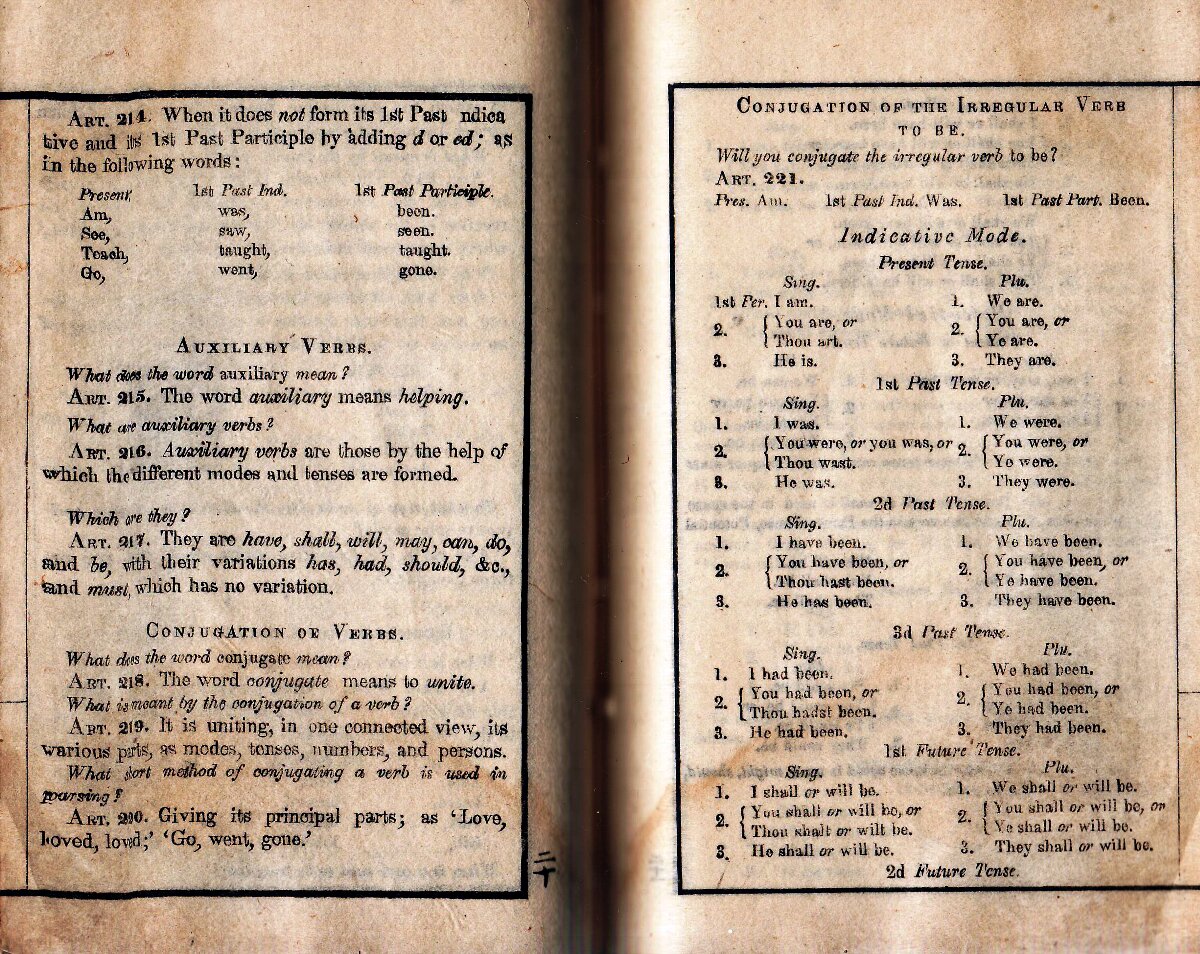 ART. 214. When it does not form its 1st Past ndica
tive and its 1st Past Participle by adding d or ed; as
in the following words:
Present, 1st Past Ind. 1st Past Participle.
Am, was, been.
See, saw, seen.
Teach, taught, taught.
Go, went, gone.
AUXILIARY VERBS.
What does the word auxiliary mean?
ART. 215. The word auxiliary means helping.
What are auxiliary verbs?
ART. 216. Auxiliary verbs are those by the help of
which the different modes and tenses are formed.
Which are they?
ART. 217. They are have, shall, will, may, can, do,
and be, with their variations has, had, should, &c.,
and must, which has no variation.
CONJUGATION OF VERBS.
What does the word conjugate mean?
ART. 218. The word conjugate means to unite.
What is meant by the conjugation of a verb?
ART. 219. It is uniting, in one connected view, its
various parts, as modes, tenses, numbers, and persons.
What short method of conjugating a verb is used in
parsing?
ART. 220. Giving its principal parts; as 'Love,
loved, loved;' 'Go, went, gone.'
二十
CONJUGATION OF THE IRREGULAR VERB
TO BE.
Will you conjugate the irregular verb to be?
ART. 221.
Pres. Am. 1st Past Ind. Was. 1st Past Part. Been.
Indicative Mode.
Present Tense.
Sing. Plu.
1st Per. I am. 1. We are.
2. { You are, or 2. { You are, or
Thou art. Ye are.
3. He is. 3. They are.
1st Past Tense.
Sing. Plu.
1. I was. 1. We were.
2. { You were, or you was, or 2. { You were, or
Thou wast. Ye were.
3. He was. 3. They were.
2d Past Tense.
Sing. Plu.
1. I have been. 1. We have been.
2. { You have been, or 2. { You have been, or
Thou hast been. Ye have been.
3. He has been. 3. They have been.
3d Past Tense.
Sing. Plu.
1. I had been. 1. We had been.
2. { You had been, or 2. { You had been, or
Thou hadst been. Ye had been.
3. He had been. 3. They had been.
1st Future Tense.
Sing. Plu.
1. I shall or will be. 1. We shall or will be.
2. { You shall or will be, or 2. { You shall or will be, or
Thou shalt or wilt be. Ye shall or will be.
3. He shall or will be. 3. They shall or will be.
2d Future Tense.